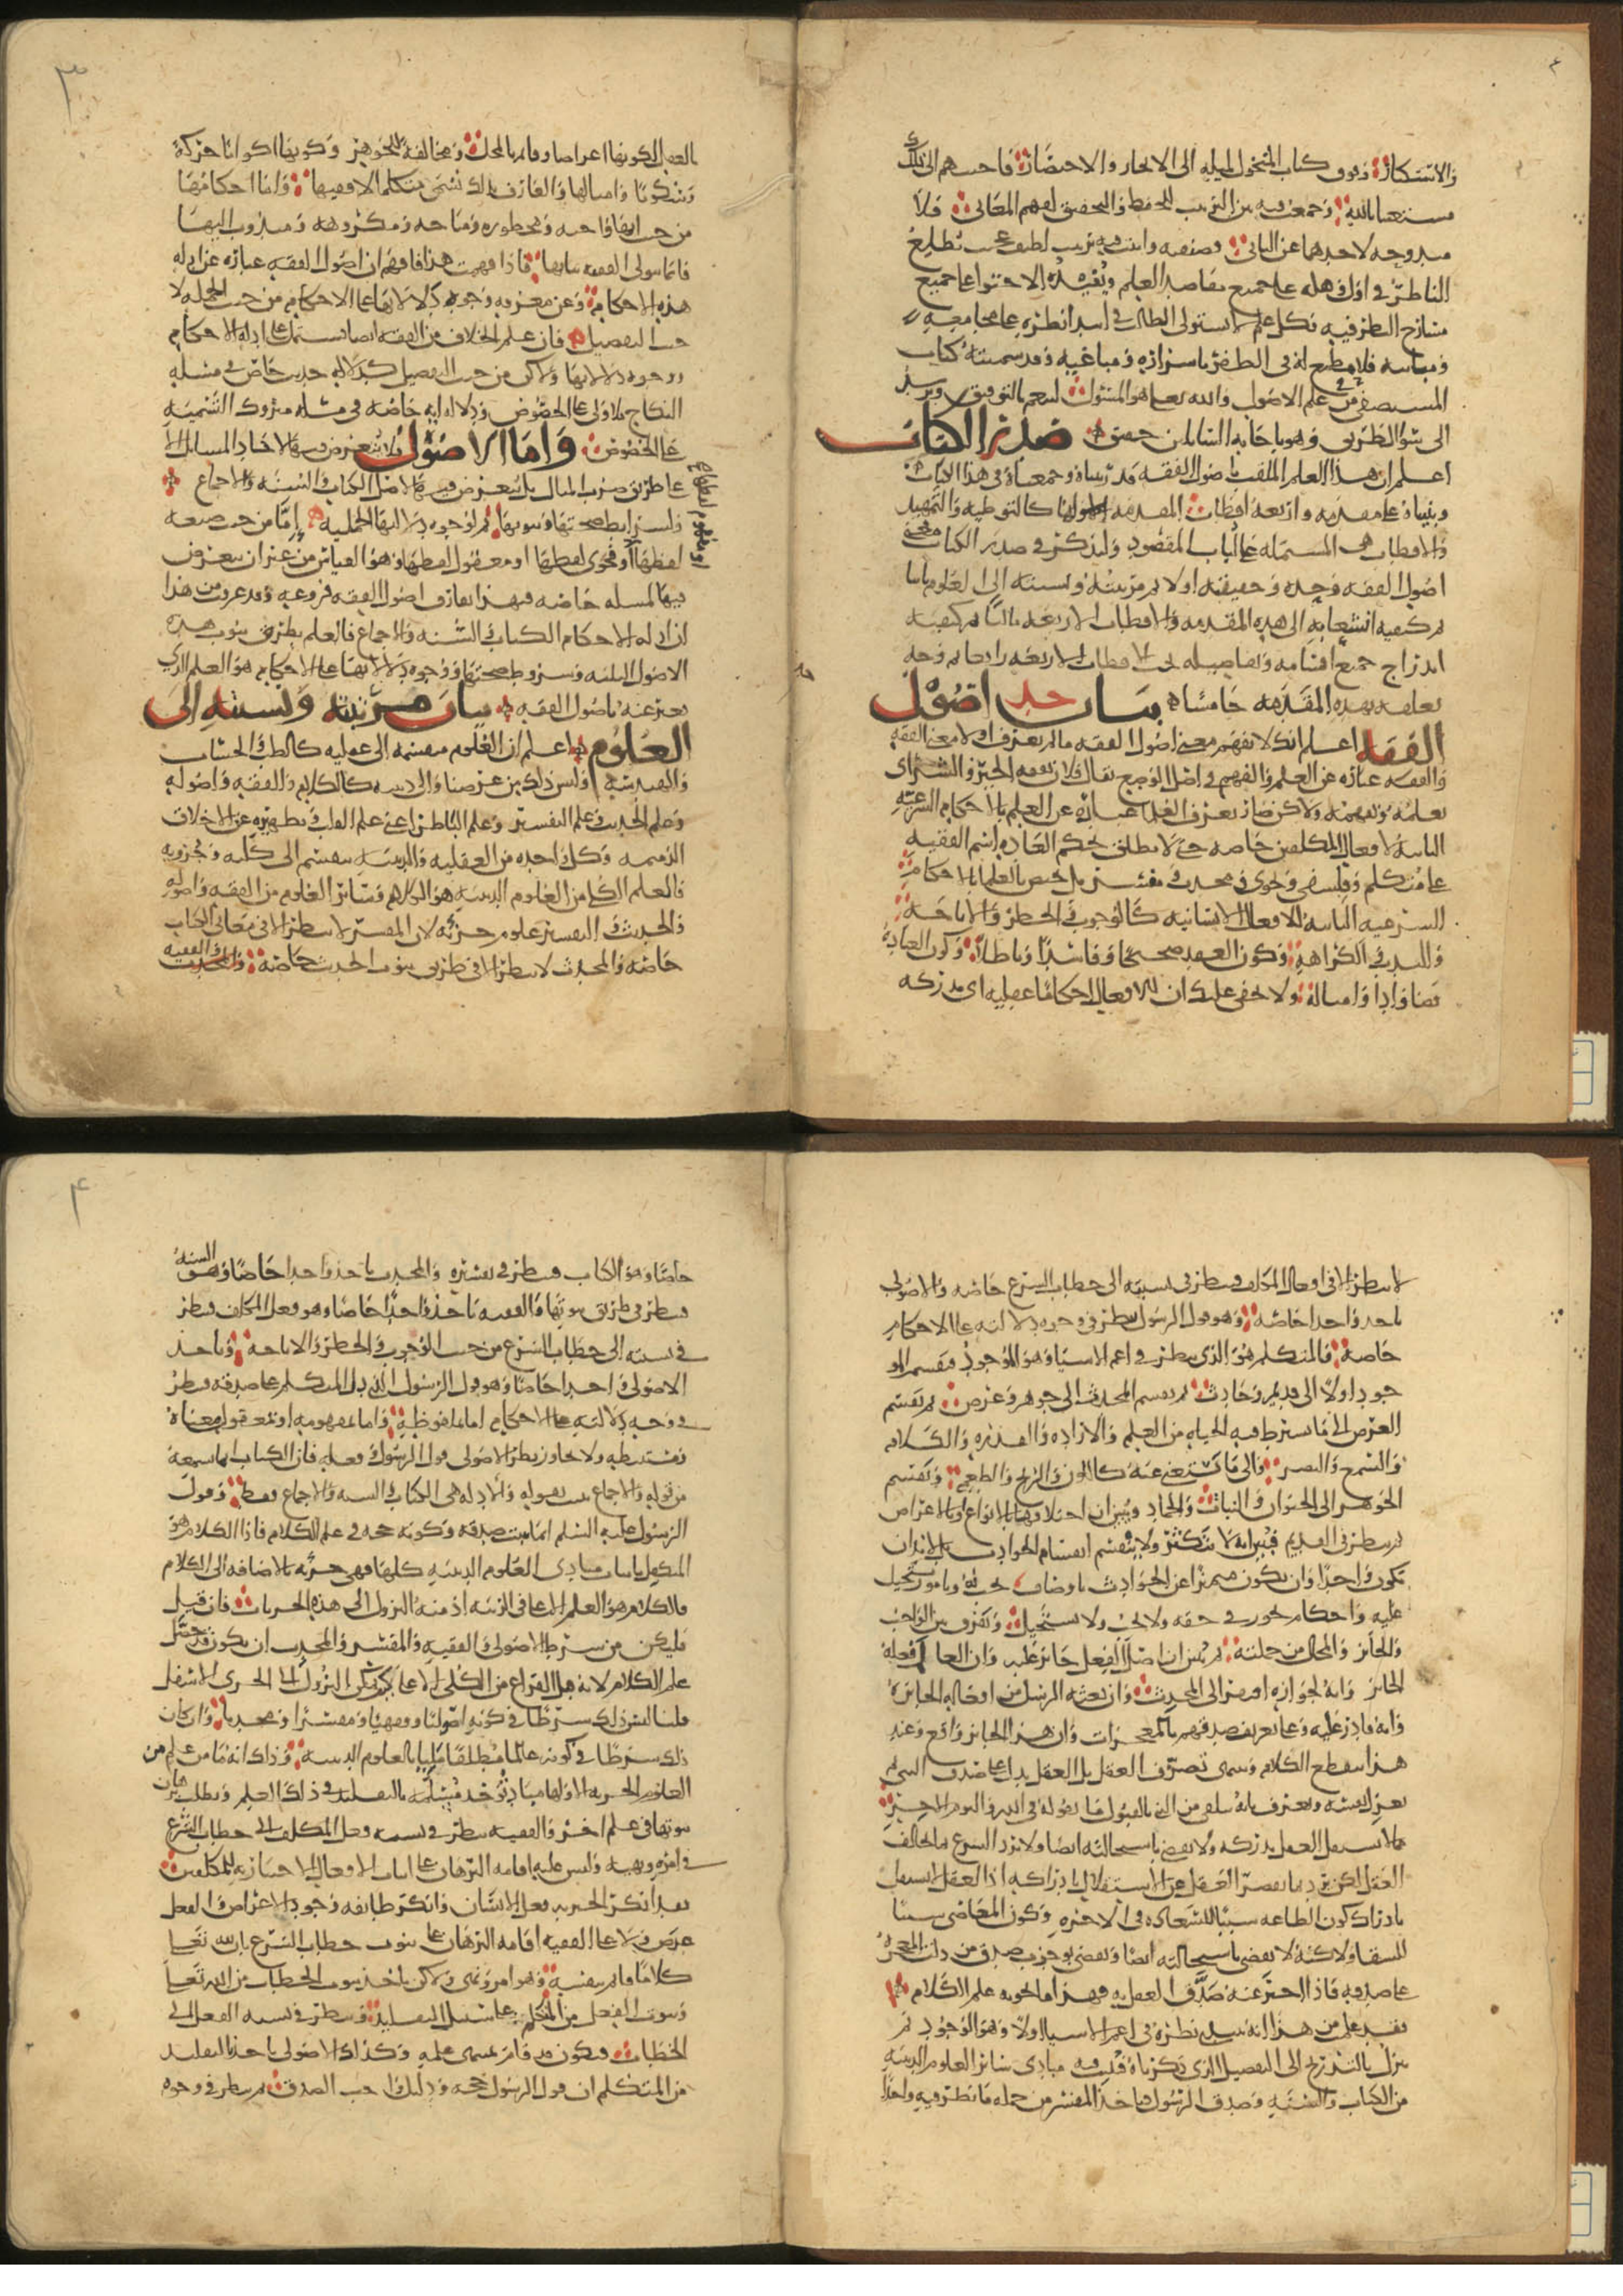 والاستكثار وفوق كتاب المنخول لميله الى الايجاز والاختصار فاجبتهم الى ذلك
مستعينا بالله وجمعت فيه بين الترتيب للحفظ والتحقيق لفهم المعاني فلا
مندوحة لاحدهما عن الثاني وصنفته واتيت فيه بترتيب لطيف عجيب يطلع
الناظر في اول وهلة على جميع مقاصد العلم ويفيده الاحتوا على جميع
مسارح النظر فيه فكل علم لا يستولى الطالب في ابتدا نظره على مجامعه
ومبانيه فلا مطمع له في الظفر باسراره ومباغيه وقد سميته كتاب
المستصفى من علم الاصول والله تعالى هو المسئول لينعم بالتوفيق ويرشد
الى سوا الطريق وهو باجابة السائلين حقيق صدر الكتاب
اعلم ان هذا العلم الملقب باصول الفقه قد رتبناه وجمعناه في هذا الكتاب
وبنيناه على مقدمة واربعة اقطاب المقدمة لها كالتوطية والتمهيد
والاقطاب هي المشتملة على لباب المقصود ولنذكر في صدر الكتاب معنى
اصول الفقه وحده وحقيقته اولا ثم مرتبته ونسبته الى العلوم ثانيا
ثم كيفية انشعابه الى هذه المقدمة والاقطاب الاربعة ثالثا ثم كيفية
اندراج جميع اقسامه وتفاصيله تحت الاقطاب الاربعة رابعا ثم وجه
تعلقه بهذه المقدمة خامسا بيان حد اصول
الفقه اعلم انك لا تفهم معنى اصول الفقه ما لم تعرف اولا معنى الفقه
والفقه عبارة عن العلم والفهم في اصل الوضع يقال فلان يفقه الخير والشر اى
يعلمه ويفهمه ولاكن صار بعرف العلما عبارة عن العلم بالاحكام الشرعية
الثابتة لافعال المكلفين خاصة حتى لا يطلق بحكم العادة اسم الفقيه
على متكلم وفلسفي ونحوى ومحدث ومفسر بل يختص بالعلما بالاحكام
الشرعية الثابتة للافعال الانسانية كالوجوب والحظر والاباحة
والندب والكراهة وكون العقد صحيحا وفاسدا وباطلا وكون العبادة
قضا وادا وامثاله ولا يخفى عليك ان للافعال احكاما عقلية اى مدركة
بالعقل ككونها اعراضا وقائمة بالمحل ومخالفة للجوهر وكونها اكوانا حركة
وسكونا وامثالها والعارف بذلك يسمى متكلما لا فقيها واما احكامها
من حيث انها واجبة ومحظورة ومباحة ومكروهة ومندوب اليها
فانما يتولى الفقيه بيانها فاذا فهمت هذا فافهم ان اصول الفقه عبارة عن ادلة
هذه الاحكام وعن معرفة وجوه دلالاتها على الاحكام من حيث الجملة لا
من حيث التفصيل فان علم الخلاف من الفقه ايضا يشتمل على ادلة الاحكام
ووجوه دلالاتها ولاكن من حيث التفصيل كدلالة حديث خاص في مسئلة
النكاح بلا ولى على الخصوص ودلالة اية خاصة في مسئلة متروك التسمية
على الخصوص واما الاصول فلا يتعرض فيها لاحاد المسائل الا
على طريق ضرب المثال بل يتعرض فيها لاصل الكتاب والسنة والاجماع
ولشرايط صحتها وثبوتها ثم لوجوه دلالتها الجملية اما من حيث صيغة
لفظها او فحوى لفظها او معقول لفظها وهو القياس من غير ان يتعرض
فيها لمسئلة خاصة فبهذا يفارق اصول الفقه فروعه وقد عرفت من هذا
ان ادلة الاحكام الكتاب والسنة والاجماع فالعلم بطرق ثبوت هذه
الاصول الثلثة وشروط صحتها ووجوه دلالاتها على الاحكام هو العلم الذى
يعبر عنه باصول الفقه بيان مرتبته ونسبته الى
العلوم اعلم ان العلوم منقسمة الى عقلية كالطب والحساب
والهندسة وليس ذلك من غرضنا والى دينية كالكلام والفقه واصوله
وعلم الحديث وعلم التفسير وعلم الباطن اعني علم القلب وتطهيره عن الاخلاق
الذميمة وكل واحدة من العقلية والدينية ينقسم الى كلية وجزوية
فالعلم الكلى من العلوم الدينية هو الكلام وسائر العلوم من الفقه واصوله
والحديث والتفسير علوم جزئية لان المفسر لا ينظر الا في معانى الكتاب
خاصة والمحدث لا ينظر الا في طريق ثبوت الحديث خاصة والفقيه
لا ينظر الا في افعال المكلف وينظر في نسبته الى خطاب الشرع خاصة والاصولى
ياخذ واحدا خاصة وهو قول الرسول ينظر في وجوه دلالته على الاحكام
خاصة فالمتكلم هو الذى ينظر في اعم الاشيا وهو الموجود فيقسم المو
جود اولا الى قديم وحادث ثم يقسم المحدث الى جوهر وعرض ثم يقسم
العرض الى ما يشترط فيه الحياة من العلم والارادة والقدرة والكلام
والسمع والبصر والى ما يستغنى عنه كاللون والريح والطعم ويقسم
الجوهر الى الحيوان والنبات والجماد ويبين ان اختلافها بالانواع او بالاعراض
ثم ينظر في القديم فيبين انه لا يتكثر ولا ينقسم انقسام الحوادث بل لا بد ان
يكون واحدا وان يكون متميزا عن الحوادث باوصاف تجب له وبامور تستحيل
عليه واحكام تجوز في حقه ولا تجب ولا تستحيل ويفرق بين الواجب
والجائز والمحال من جملته ثم يبين ان اصل الفعل جائز عليه وان العالم فعله
الجائز وانه لجوازه افتقر الى المحدث وان بعثه الرسل من افعاله الجائزة
وانه قادر عليه وعلى تعريف صدقهم بالمعجزات وان هذا الجائز واقع وعند
هذا ينقطع الكلام وينتهى تصرف العقل بل العقل يدل على صدق النبى ثم
يعزل نفسه ويعترف بانه يتلقى من النبى بالقبول ما يقوله في الله واليوم الاخر
مما لا يستقل العقل بدركه ولا يقضى باستحالته ايضا ولا يرد الشرع بما يخالف
العقل لكن يرد بما يقصر العقل عن الاستقلال بادراكه اذ العقل لا يستقل
بادراك كون الطاعة سببا للسعادة في الاخرة وكون المعاصى سببا
للشقاوة لاكنه لا يقضى باستحالته ايضا ويقضى بوجوب صدق من دلت المعجزة
على صدقه فاذا اخبر عنه صدق العقل به فهذا ما يحويه علم الكلام
فقد علمت من هذا انه يبتدى نظره في اعم الاشيا اولا وهو الوجود ثم
ينزل بالتدريج الى التفصيل الذى ذكرناه فيثبت فيه مبادى سائر العلوم الدينية
من الكتاب والسنة وصدق الرسول فياخذ المفسر من جملة ما نظر فيه واحدا
خاصا وهو الكتاب فينظر في تفسيره والمحدث ياخذ واحدا خاصا وهو السنة
فينظر في طريق ثبوتها والفقيه ياخذ واحدا خاصا وهو فعل المكلف فينظر
في نسبته الى خطاب الشرع من حيث الوجوب والحظر والاباحة وياخذ
الاصولى واحدا خاصا وهو قول الرسول الذى دل المتكلم على صدقه فينظر
في وجه دلالته على الاحكام اما بملفوظه واما بمفهومه او بمعقول معناه
ومستنبطه ولا يجاوز نظر الاصولى قول الرسول وفعله فان الكتاب انما يسمعه
من قوله والاجماع يثبت بقوله والادلة هى الكتاب والسنة والاجماع فقط وقول
الرسول عليه السلم انما يثبت صدقه وكونه حجة في علم الكلام فاذا الكلام هو
المتكفل باثبات مبادى العلوم الدينية كلها فهى جزئية بالاضافة الى الكلام
فالكلام هو العلم الاعلى في الرتبة اذ منه النزول الى هذه الجزيات فان قيل
فليكن من شرط الاصولى والفقيه والمفسر والمحدث ان يكون قد حصل
علم الكلام لانه قبل الفراغ من الكلى الاعلى كيف يمكن النزول الى الجزى الاسفل
قلنا ليس ذلك شرطا في كونه اصوليا وفقيها ومفسرا ومحدثا وان كان
ذلك شرطا في كونه عالما مطلقا مليا بالعلوم الدينية وذلك انه ما من علم من
العلوم الجزية الا ولها مباد توخذ مسلمة بالتقليد في ذلك العلم ويطلب برهان
ثبوتها في علم اخر فالفقيه ينظر في نسبة فعل المكلف الى خطاب الشرع
في امره ونهيه وليس عليه اقامة البرهان على اثبات الافعال الاختيارية للمكلفين
فقد انكرت الجبرية فعل الانسان وانكر طائفة وجود الاعراض والفعل
عرض ولا على الفقيه اقامة البرهان على ثبوت خطاب الشرع بان لله تعالى
كلاما قائما بنفسه وهو امر ونهى ولاكن ياخذ ثبوت الخطاب من الله تعالى
وثبوت الفعل من المكلم على سبيل التقليد وينظر في نسبة الفعل الى
الخطاب فيكون قد قام بمنتهى علمه وكذلك الاصولى ياخذ بالتقليد
من المتكلم ان قول الرسول حجة ودليل واجب الصدق ثم ينظر في وجوه